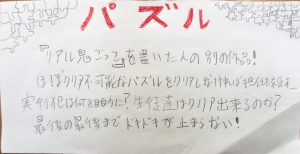 パズル
『リアル鬼ごっこ』を書いた人の別の作品!
ほぼクリア不可能なパズルをクリアしなければ担任を殺す…
実行犯は何を目的に?生徒達はクリア出来るのか?
最後の最後までドキドキが止まらない!